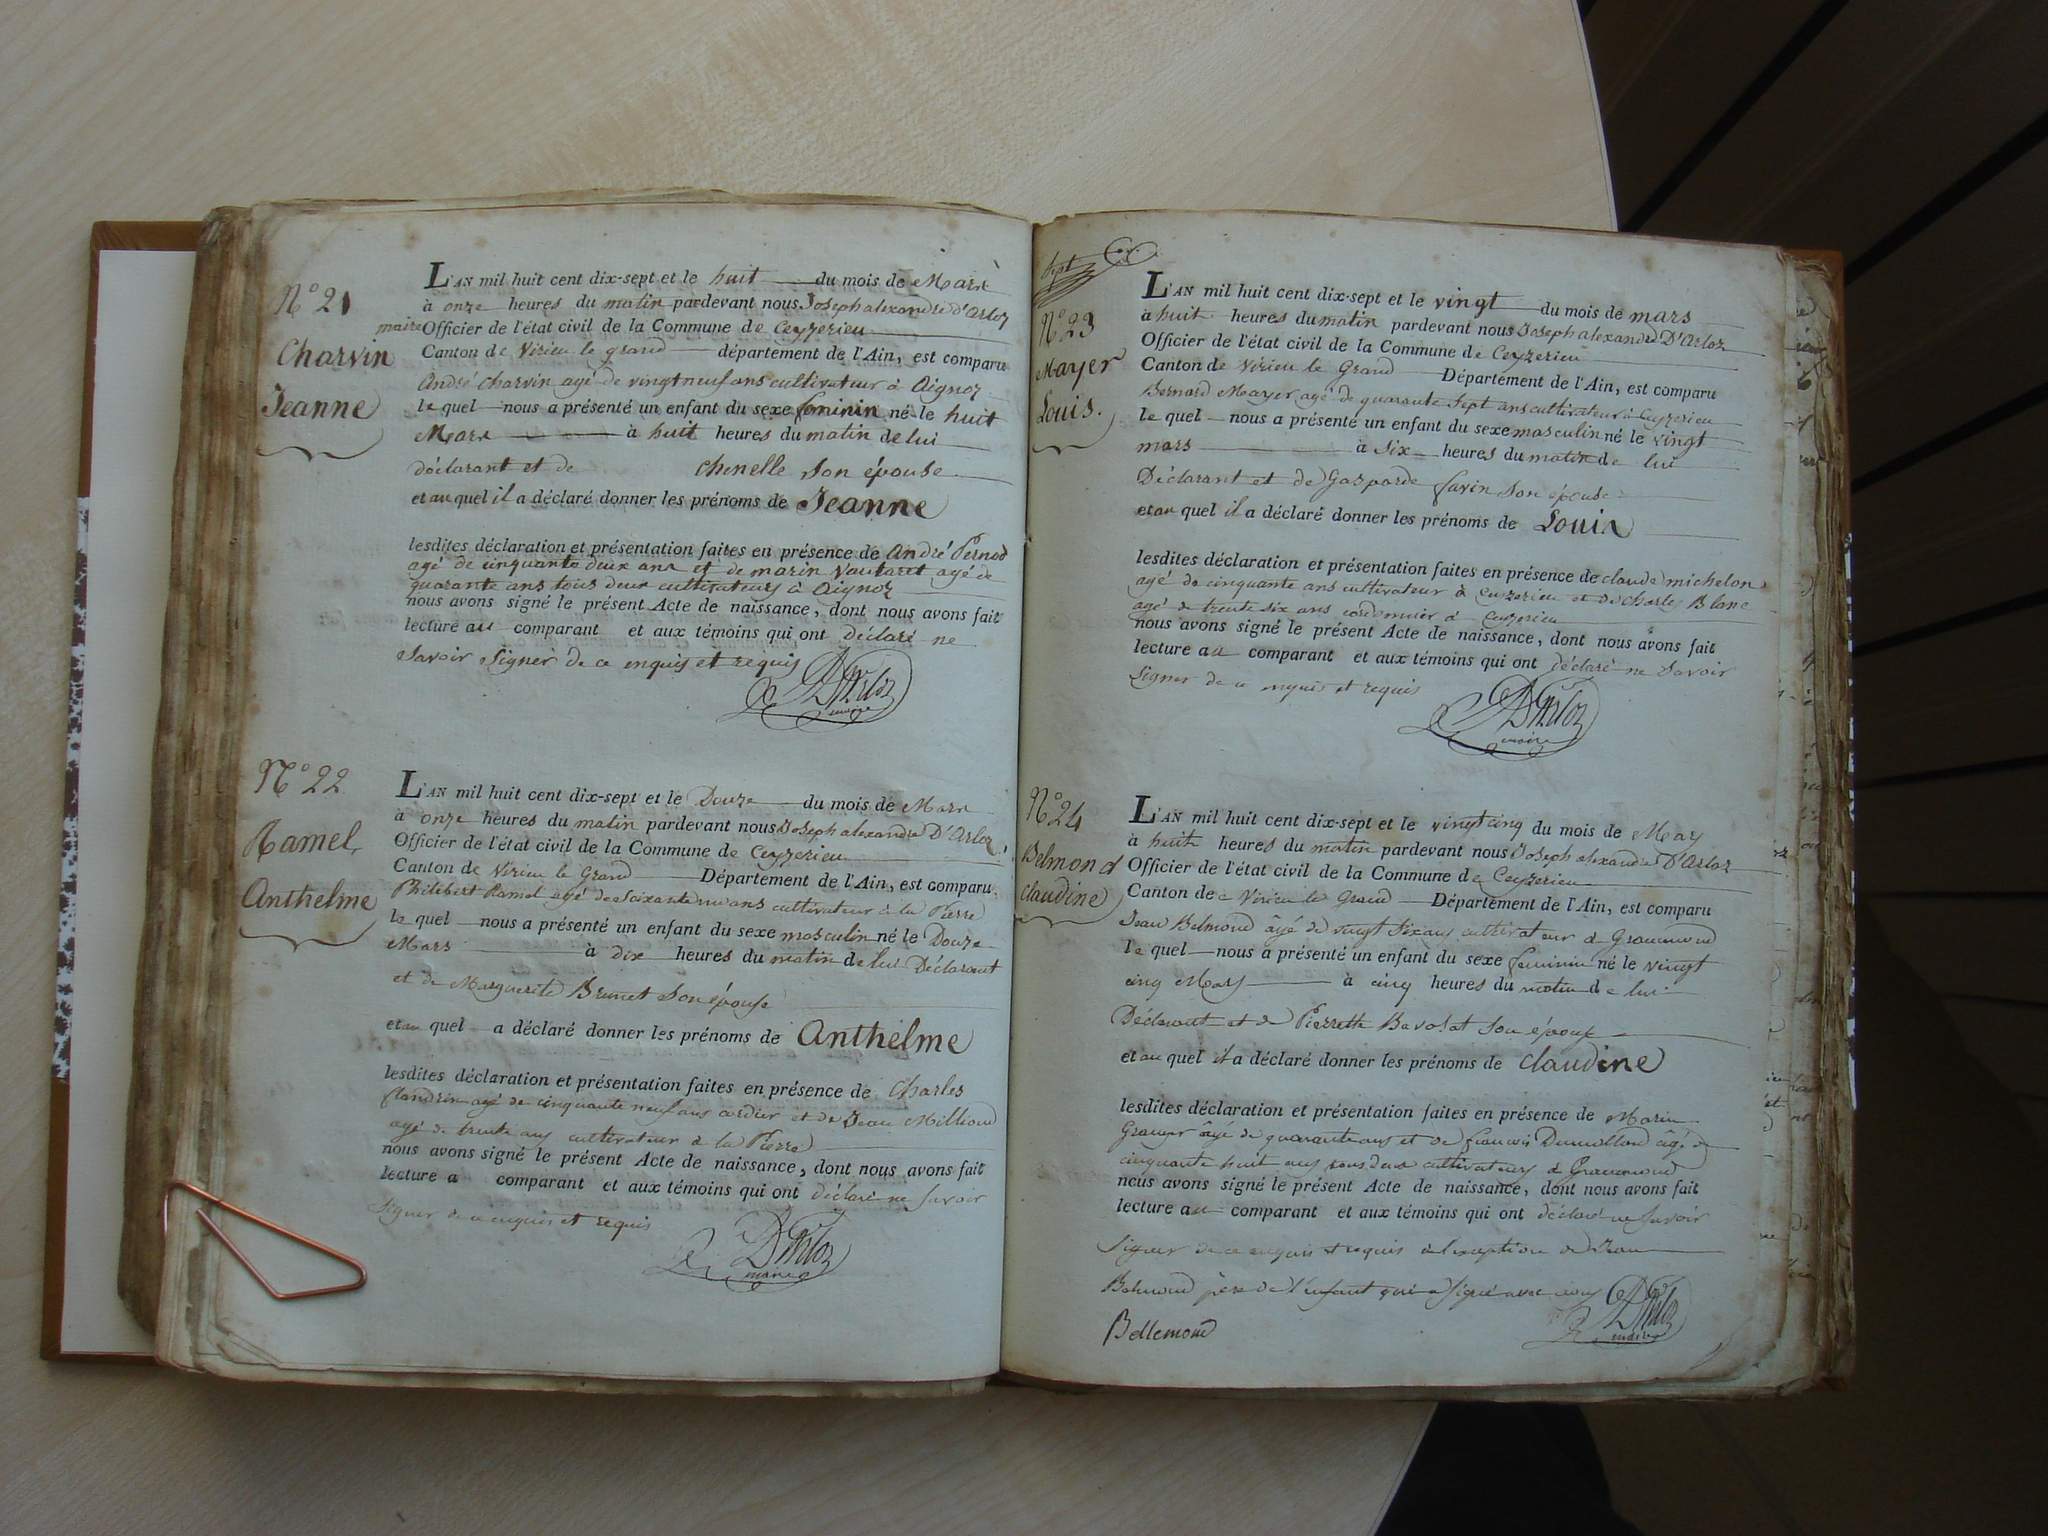 N° 21
Charvin
Jeanne
L'AN mil huit cent dix-sept et le huit du mois de Mars
à onze heures du matin pardevant nous Joseph alexandre d'Arloz
maire Officier de l'état civil de la Commune de Ceyzerieu
Canton de Virieu le grand département de l'Ain, est comparu
André Charvin agé de vingt neuf ans cultivateur à Aignoz
le quel nous a présenté un enfant du sexe feminin né le huit
Mars à huit heures du matin de lui
déclarant et de chenelle son épouse
et au quel il a déclaré donner les prénoms de Jeanne
lesdites déclaration et présentation faites en présence de André Pernod
agé de cinquante deux ans et de marin Vautaret agé de
quarante ans tous deux cultivateurs à Aignoz
nous avons signé le présent Acte de naissance, dont nous avons fait
lecture au comparant et aux témoins qui ont déclaré ne
savoir signer de ce enquis et requis
D'Arloz
maire
N° 22
Ramel
Anthelme
L'AN mil huit cent dix-sept et le Douze du mois de Mars
à onze heures du matin pardevant nous Joseph alexandre D'Arloz
Officier de l'état civil de la Commune de Ceyzerieu
Canton de Virieu le Grand Département de l'Ain, est comparu
Philibert Ramel agé de Soixante un ans cultivateur à la Pierre
le quel nous a présenté un enfant du sexe masculin né le Douze
Mars à dix heures du matin de lui Déclarant
et de Marguerite Brunet son épouse
et au quel a déclaré donner les prénoms de Anthelme
lesdites déclaration et présentation faites en présence de Charles
flandrin agé de cinquante neuf ans cordier et de Jean Milliond
agé de trente ans cultivateur à la Pierre
nous avons signé le présent Acte de naissance, dont nous avons fait
lecture a comparant et aux témoins qui ont déclaré ne savoir
signer de ce enquis et requis
D'Arloz
maire
sept
N° 23
Mayer
Louis.
L'AN mil huit cent dix-sept et le vingt du mois de mars
à huit heures du matin pardevant nous Joseph alexandre D'Arloz
Officier de l'état civil de la Commune de Ceyzerieu
Canton de Virieu le Grand Département de l'Ain, est comparu
Bernard Mayer agé de quarante sept ans cultivateur à Ceyzerieu
le quel nous a présenté un enfant du sexe masculin né le vingt
mars à six heures du matin de lui
Déclarant et de Gasparde favin son épouse
et au quel il a déclaré donner les prénoms de Louis
lesdites déclaration et présentation faites en présence de claude michelon
agé de cinquante ans cultivateur à Ceyzerieu et de Charles Blanc
agé de trente six ans cordonnier à Ceyzerieu
nous avons signé le présent Acte de naissance, dont nous avons fait
lecture au comparant et aux témoins qui ont déclaré ne savoir
signer de ce enquis et requis
D'Arloz
maire
N° 24
Belmond
claudine
L'AN mil huit cent dix-sept et le vingt cinq du mois de Mars
à huit heures du matin pardevant nous Joseph alexandre D'Arloz
Officier de l'état civil de la Commune de Ceyzerieu
Canton de Virieu le Grand Département de l'Ain, est comparu
Jean Belmond âgé de vingt six ans cultivateur à Grammond
le quel nous a présenté un enfant du sexe feminin né le vingt
cinq Mars à cinq heures du matin de lui
Déclarant et de Pierrette Bavosat son épouse
et au quel il a déclaré donner les prénoms de claudine
lesdites déclaration et présentation faites en présence de Marin
Granger âgé de quarante ans et de françois Dumolland âgé de
cinquante huit ans tous deux cultivateurs à Grammond
nous avons signé le présent Acte de naissance, dont nous avons fait
lecture au comparant et aux témoins qui ont déclaré ne savoir
signer de ce enquis et requis à l'exception de Jean
Belmond père de l'enfant qui a signé avec nous
Bellemond
D'Arloz
maire